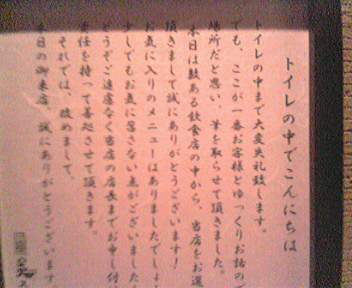 トイレの中でこんにちは
トイレの中まで大変失礼致します。
でも、ここが一番お客様とゆっくりお話ので
場所だと思い、筆を取らせて頂きました。
本日は数ある飲食店の中から、当店をお選
頂きまして誠にありがとうございます！
お気に入りのメニューはありましたでしょ
少しでもお気に召さない点がございました
どうぞご遠慮なく当店の店長までお申し付
責任を持って善処させて頂きます。
それでは、改めまして。
本日の御来店、誠にありがとうございます